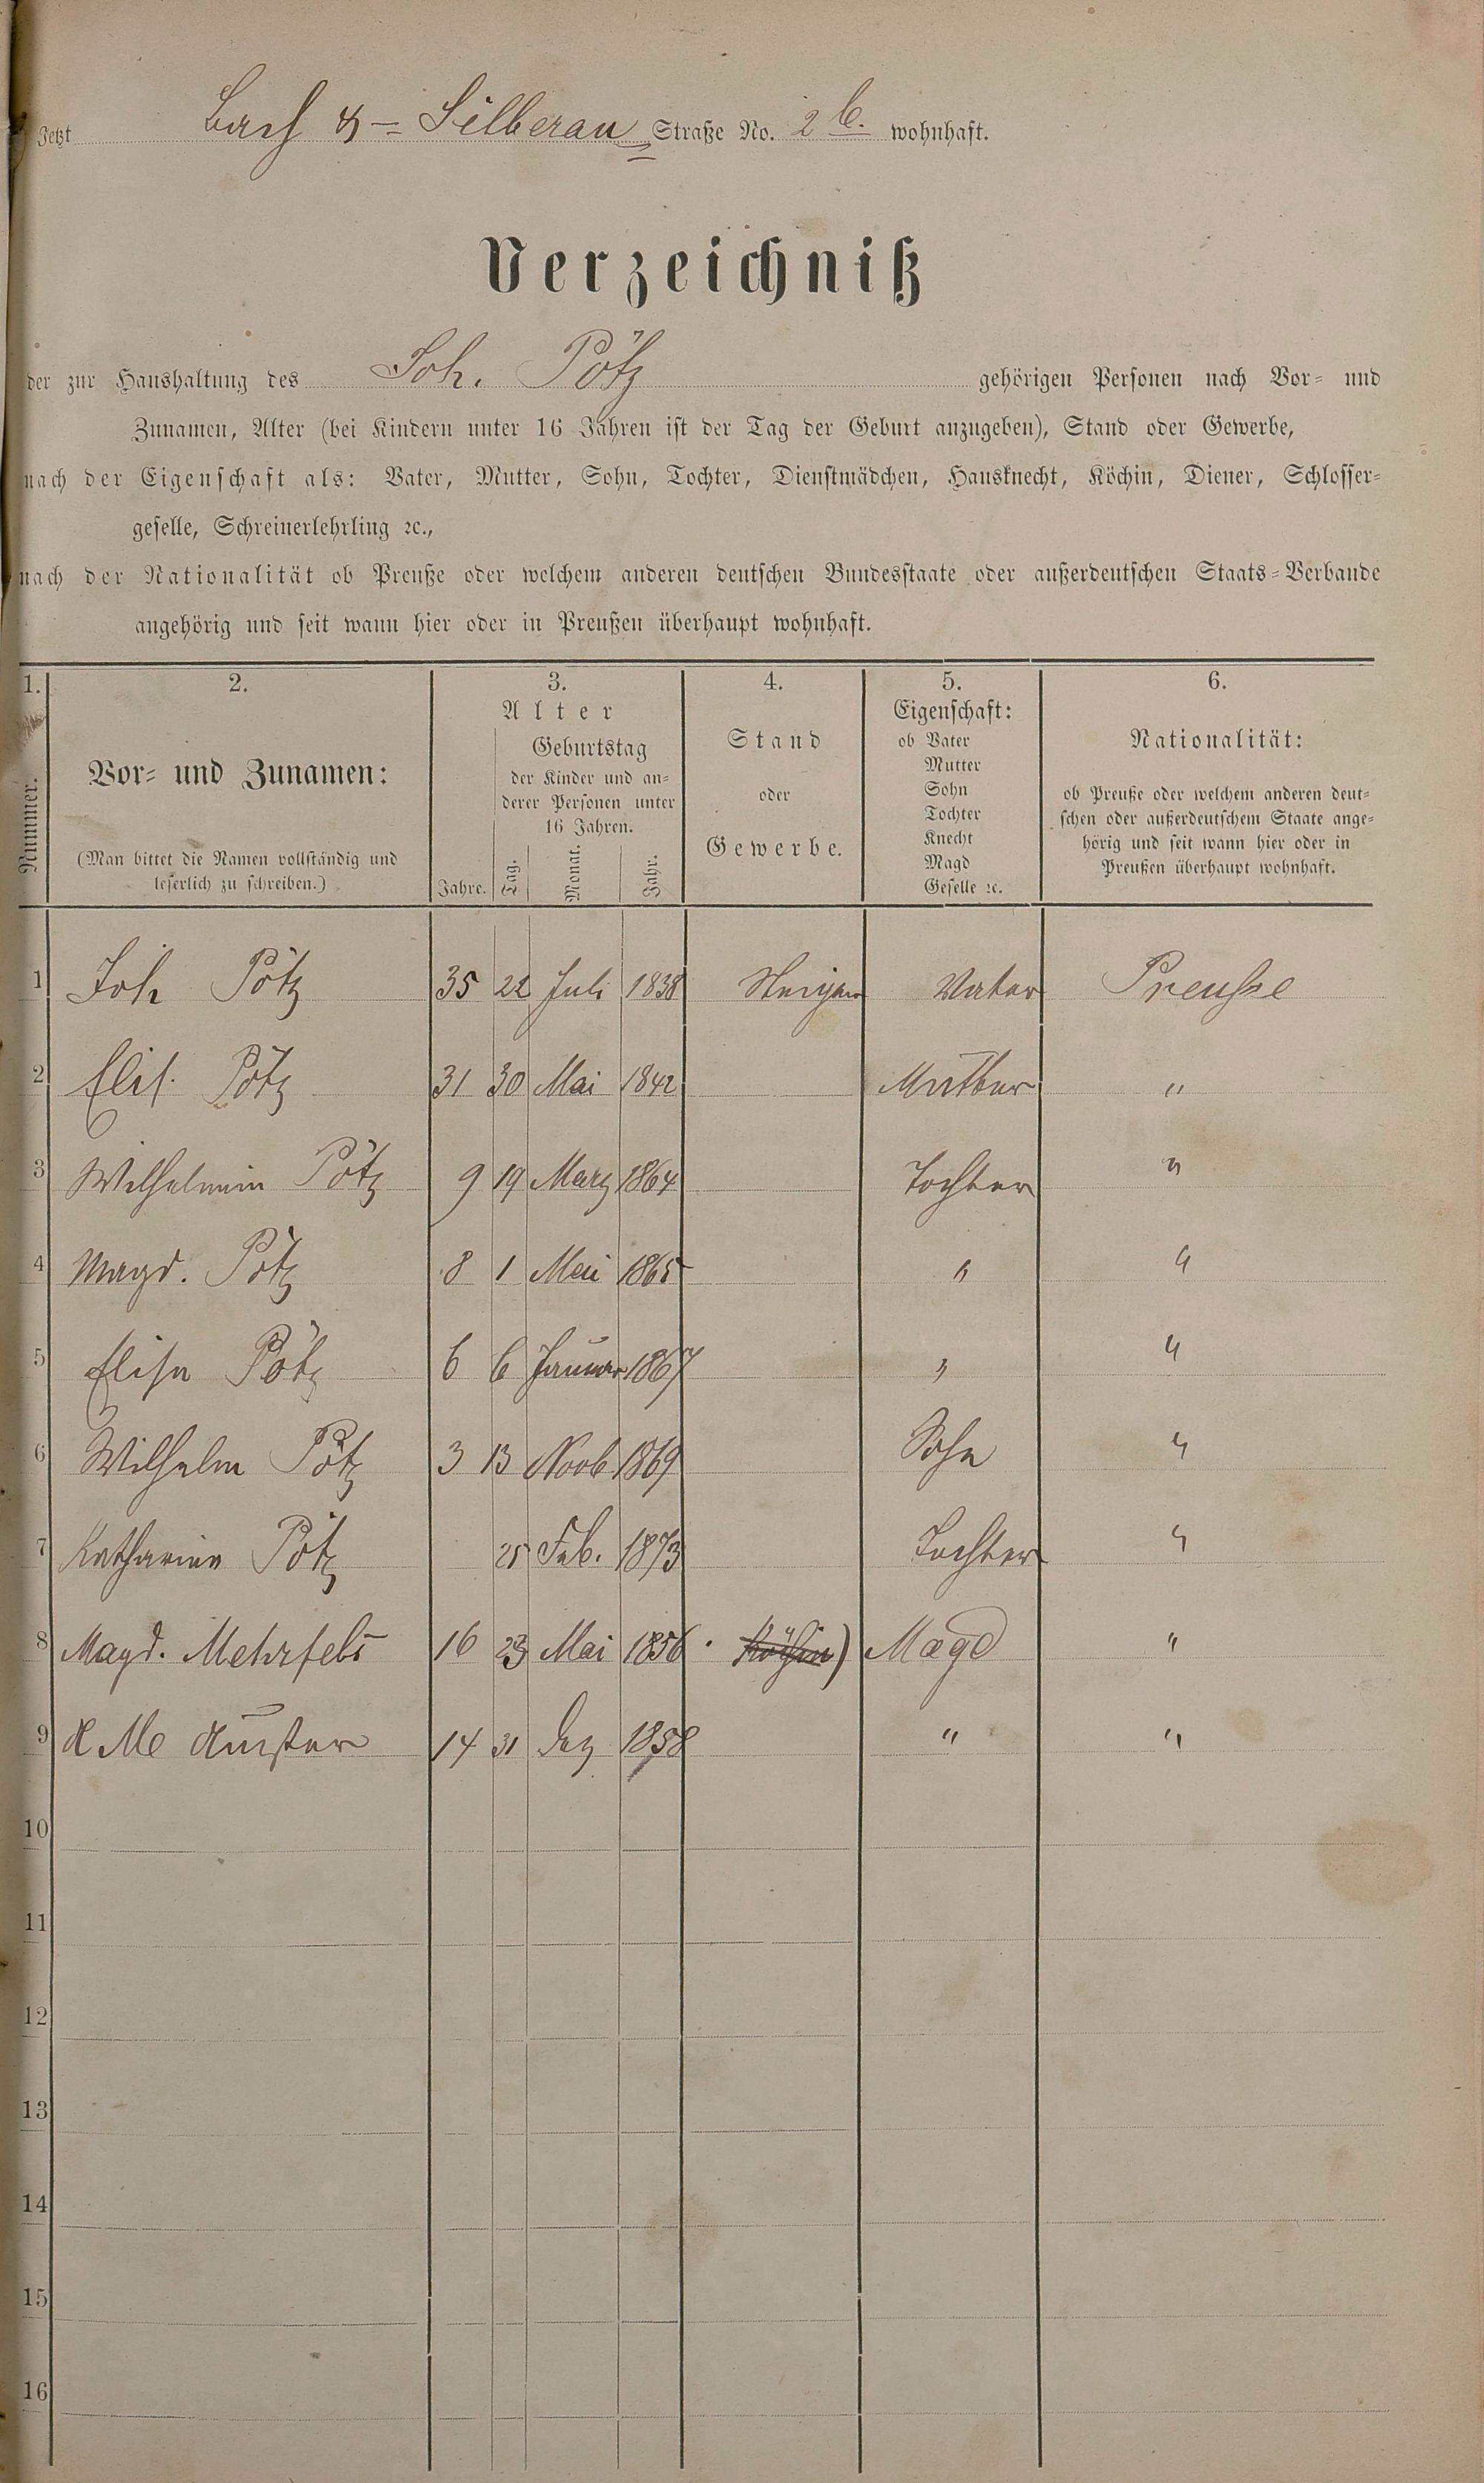 Jetzt Bach & = Silberau Straße No. 2 b. wohnhaft.
Verzeichniß
der zur Haushaltung des Joh. Pötz gehörigen Personen nach Vor- und
Zunamen, Alter (bei Kindern unter 16 Jahren ist der Tag der Geburt anzugeben), Stand oder Gewerbe,
nach der Eigenschaft als: Vater, Mutter, Sohn, Tochter, Dienstmädchen, Hausknecht, Köchin, Diener, Schlosser-
geselle, Schreinerlehrling ꝛc.,
nach der Nationalität ob Preuße oder welchem anderen deutschen Bundesstaate oder außerdeutschen Staats-Verbande
angehörig und seit wann hier oder in Preußen überhaupt wohnhaft.
1. 2. 3. 4. 5. 6.
Nummer.
Vor- und Zunamen:
(Man bittet die Namen vollständig und
leserlich zu schreiben.)
Alter
Geburtstag
der Kinder und an-
derer Personen unter
16 Jahren.
Jahre. Tag. Monat. Jahr.
Stand
oder
Gewerbe.
Eigenschaft:
ob Vater
Mutter
Sohn
Tochter
Knecht
Magd
Geselle ꝛc.
Nationalität:
ob Preuße oder welchem anderen deut-
schen oder außerdeutschem Staate ange-
hörig und seit wann hier oder in
Preußen überhaupt wohnhaft.
1 Joh Pötz 35 22 Juli 1838 Vater Preuße
2 Elis. Pötz 31 30 Mai 1842 Mutter "
3 Wilhelmin Pötz 9 19 Marz 1864 Tochter "
4 Magd. Pötz 8 1 Mai 1865 " "
5 Elisa Pötz 6 6 Januar 1867 " "
6 Wilhelm Pötz 3 13 Novb 1869 Sohn "
7 Katharina Pötz 25 Feb. 1873 Tochter "
8 Magd. Mehrfels 16 23 Mai 1856 Köchin) Magd "
9 14 31 Dez 1858 " "
10
11
12
13
14
15
16